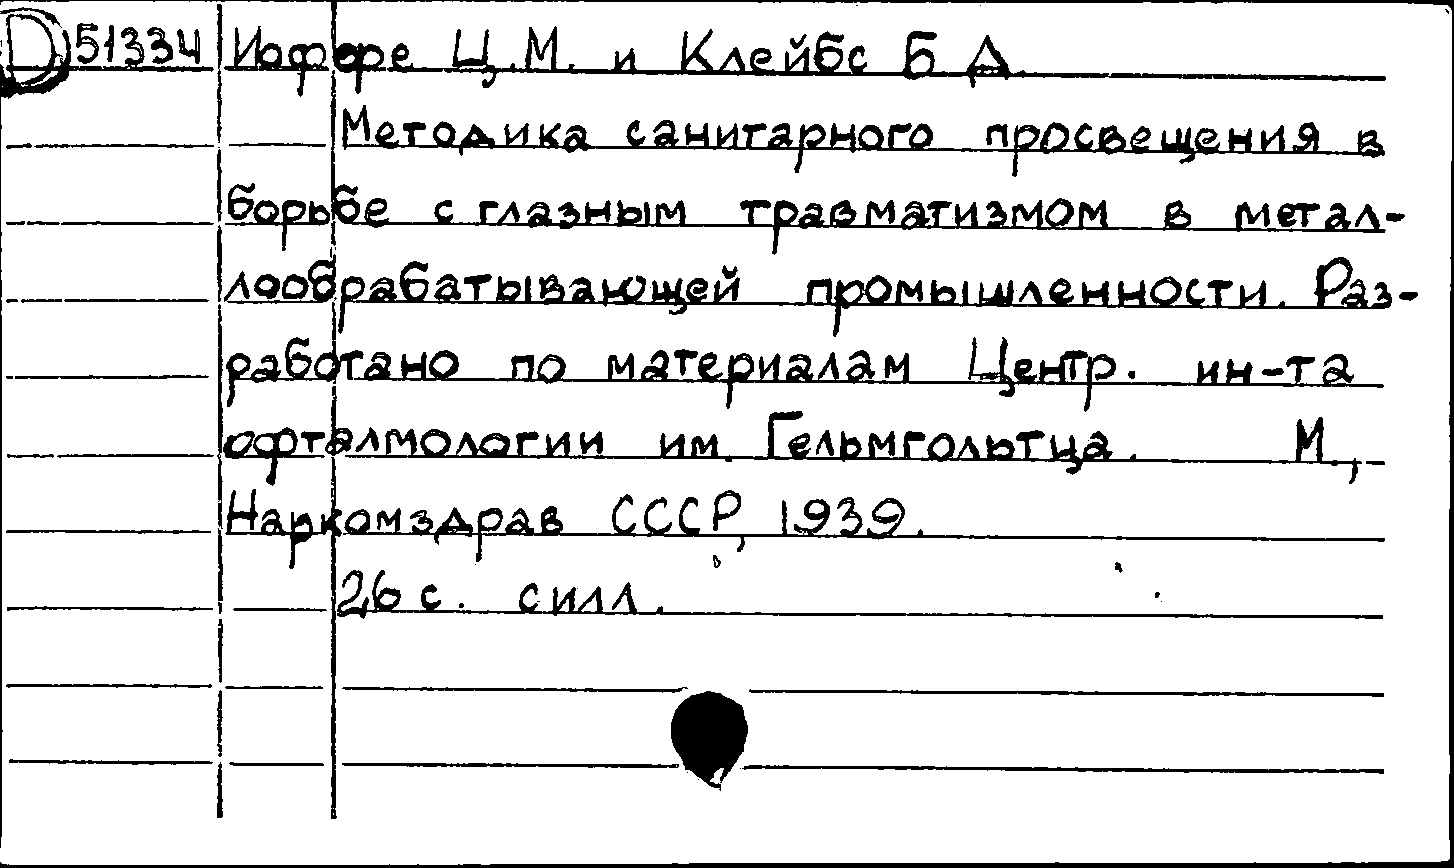 D 51334 Иоффе Ц.М. и Клейбс Б А.
Методика санитарного просвещения в
борьбе с глазным травматизмом в метал-
лообрабатывающей промышленности. Раз-
работано по материалам Центр. ин-та
офталмологии им. Гельмгольтца. М.,
Наркомздрав СССР, 1939.
26 с. силл.